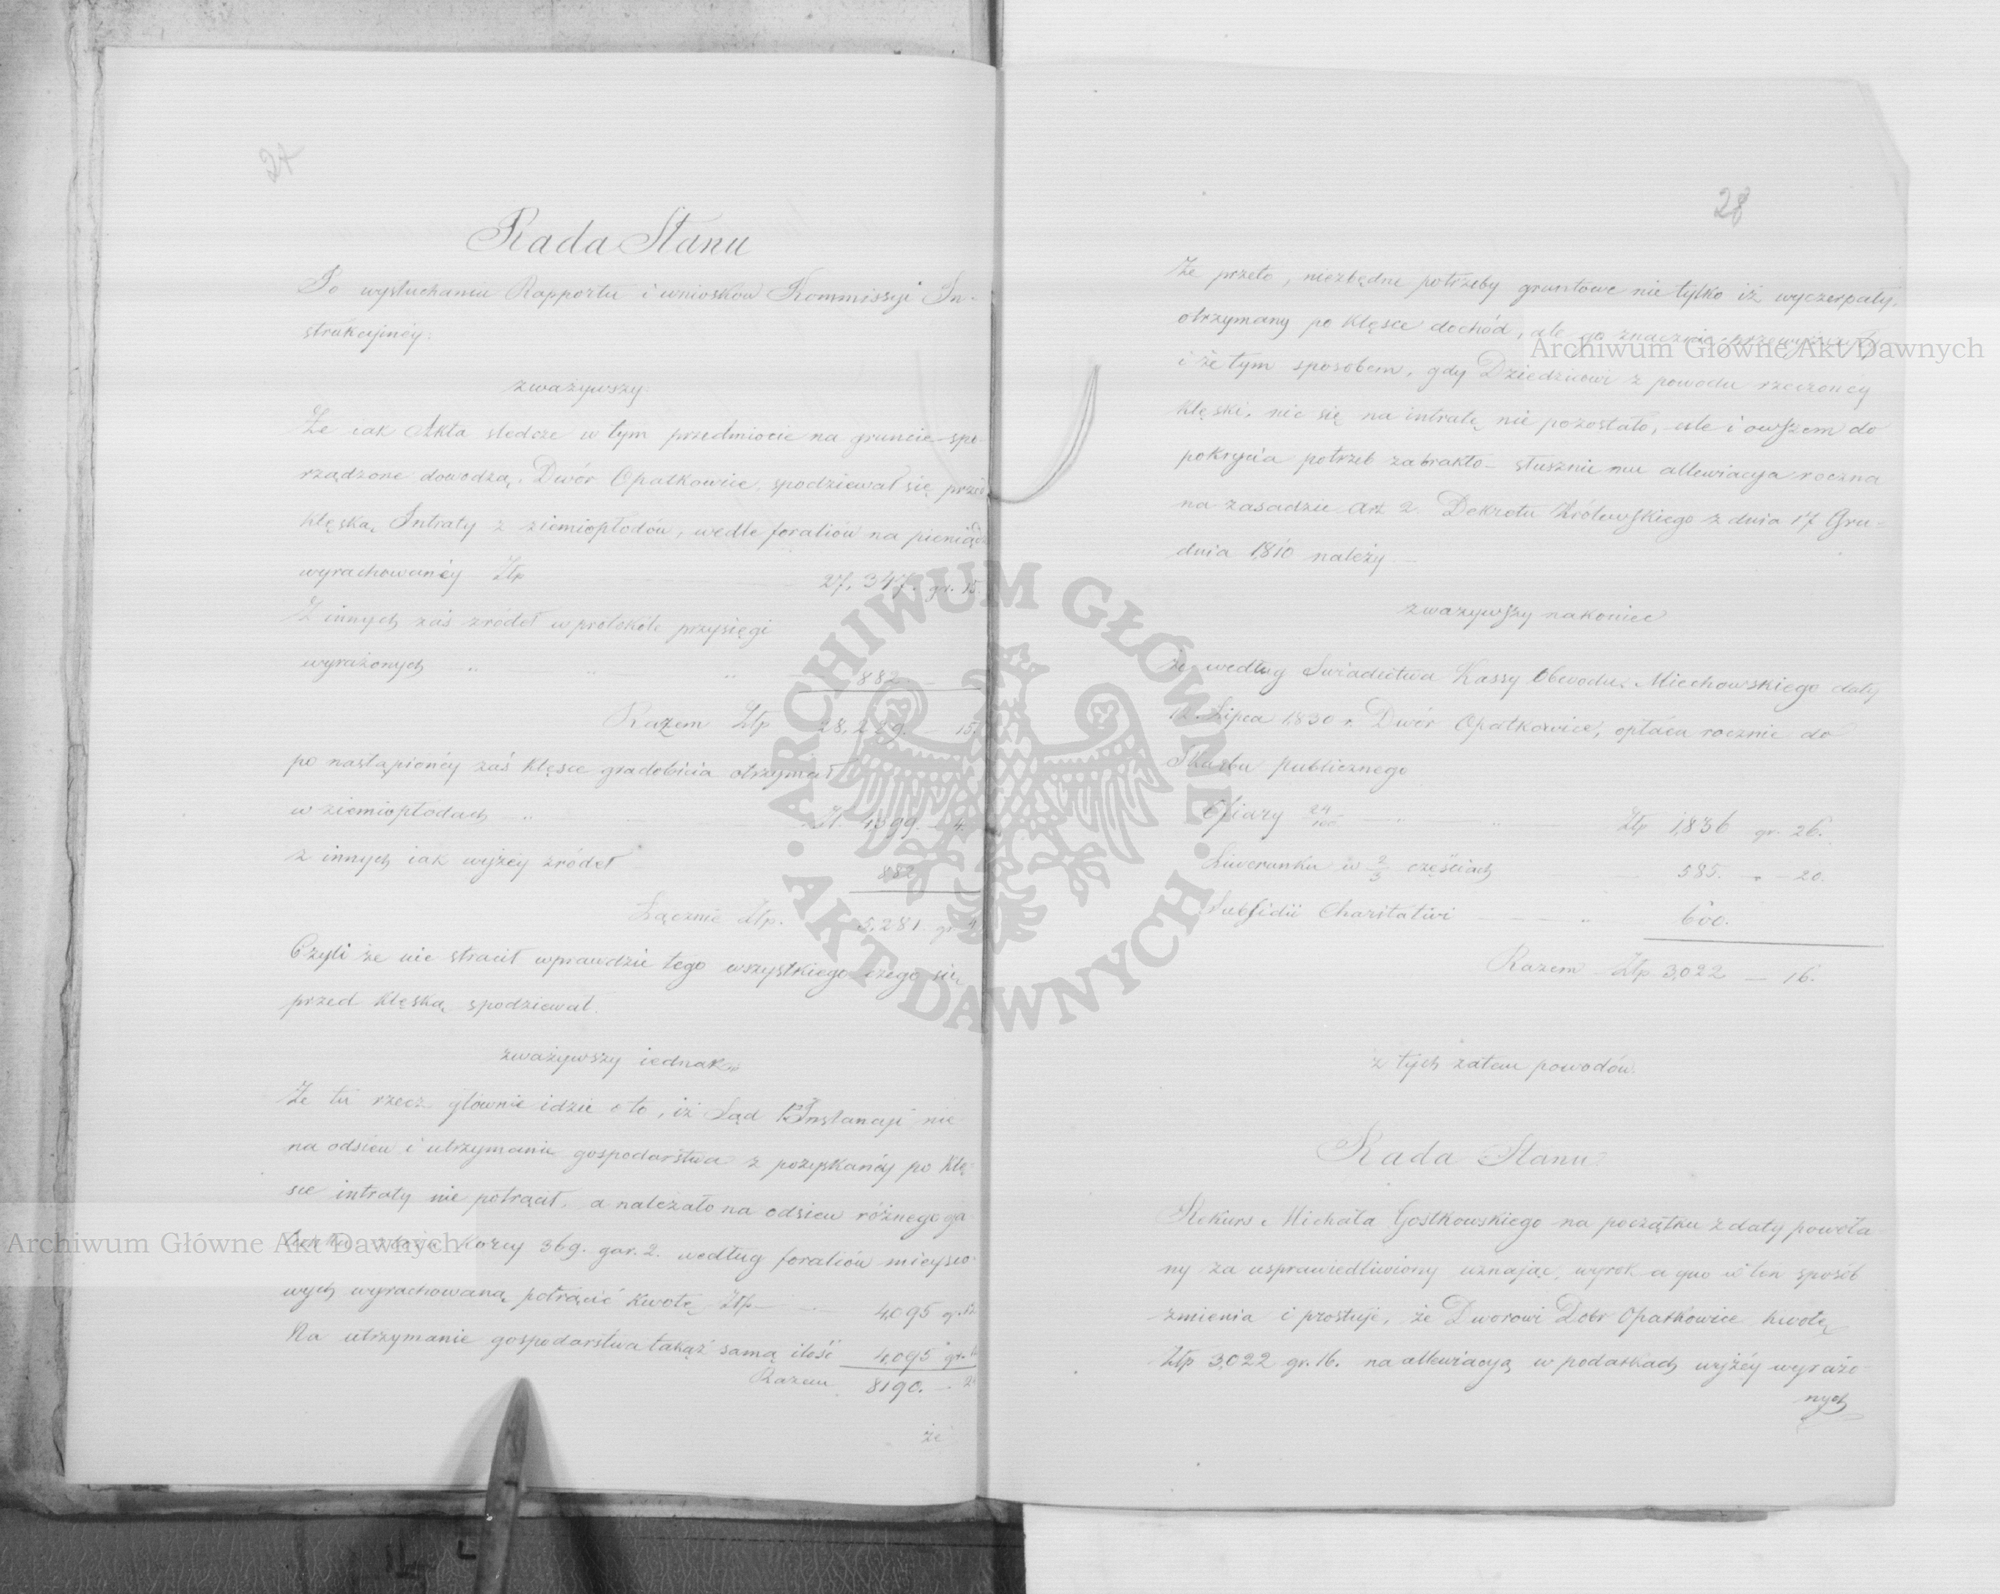 27
Rada Stanu
Po wysłuchaniu Rapportu i wniosków Kommissyi In-
strukcyjnéy.
zważywszy
Że iak Akta śledcze w tym przedmiocie na gruncie spo-
rządzone dowodzą, Dwór Opatkowice, spodziewał się przed
klęską Intraty z ziemiopłodów, wedle foraliów na pieniądz
wyrachowanéy Złp 27,347. gr. 15
Z innych zaś źródeł w protokóle przysięgi
wyrażonych „ „ „ 882 —
Razem Złp 28,229. — 15
po nastąpionéy zaś klęsce gradobicia otrzymał
w ziemiopłodach „ Zł. 4399. — 4.
z innych iak wyżéy źródeł 882
Łącznie Złp. 5,281 gr 4
Czyli że nie stracił wprawdzie tego wszystkiego czego się
przed klęską spodziewał.
zważywszy iednak
Że tu rzecz głównie idzie o to, iż Sąd Instancyi nic
na odsiew i utrzymanie gospodarstwa z pozyskanéy po klę
sce intraty nie potrącił, a należało na odsiew różnego ga
tunku zboża Korcy 369. gar. 2. według foraliów mieysco-
wych wyrachowaną potrącić kwotę Złp — 4,095 gr.
Na utrzymanie gospodarstwa takąż samą ilość 4,095 gr.
Razem 8190. —
że
28
Że przeto, niezbędne potrzeby gruntowe nie tylko iż wyczerpały
otrzymany po klęsce dochód, ale go znacznie przewyższyły
i że tym sposobem, gdy Dziedzicowi z powodu rzeczonéy
klęski, nic się na intratę nie pozostało, ale i owszem do
pokrycia potrzeb zabrakło — słusznie mu allewiacya roczna
na zasadzie Art 2. Dekretu Królewskiego z dnia 17 Gru-
dnia 1810 należy —
zważywszy nakoniec
że według Świadectwa Kassy Obwodu Miechowskiego daty
12. Lipca 1830 r. Dwór Opatkowice, opłaca rocznie do
Skarbu publicznego
Ofiary 24/100 — „ — „ Złp 1,836 gr. 26.
Liwerunku w 2/3 częściach — 585. „ — 20.
Subsidii Charitativi — „ 600.
Razem Złp 3,022 — 16.
z tych zatem powodów
Rada Stanu
Rekurs Michała Gostkowskiego na początku z daty powoła
ny za usprawiedliwiony uznając, wyrok a quo w ten sposób
zmienia i prostuje, że Dworowi Dóbr Opatkowice kwotę
Złp 3,022 gr. 16. na allewiacyą w podatkach wyżéy wyrażo
nych
Archiwum Główne Akt Dawnych
Archiwum Główne Akt Dawnych
ARCHIWUM GŁÓWNE
AKT DAWNYCH